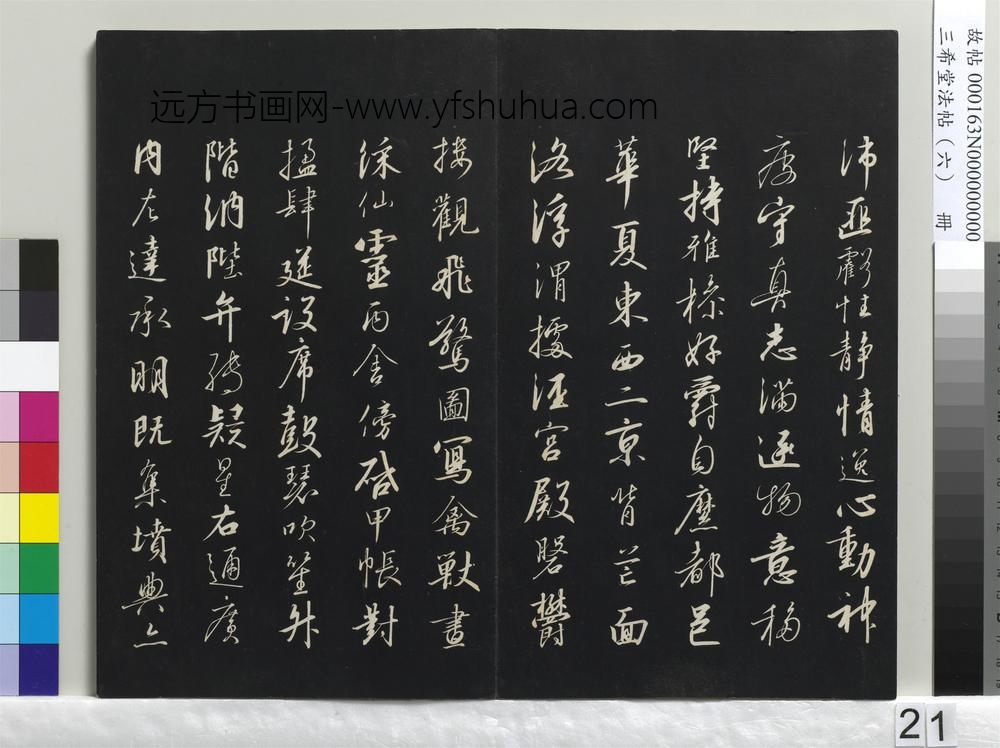 沛匪虧性静情逸心動神
疲守真志滿逐物意移
堅持雅操好爵自縻都邑
華夏東西二京背芒面
洛浮渭據涇宮殿盤鬱
樓觀飛驚圖寫禽獸畫
綵仙靈丙舍傍啓甲帳對
楹肆筵設席鼓瑟吹笙升
階納陛弁轉疑星右通廣
内左達承明既集墳典亦
远方书画网-www.yfshuhua.com
故帖 000163N000000000
三希堂法帖（六） 冊
21